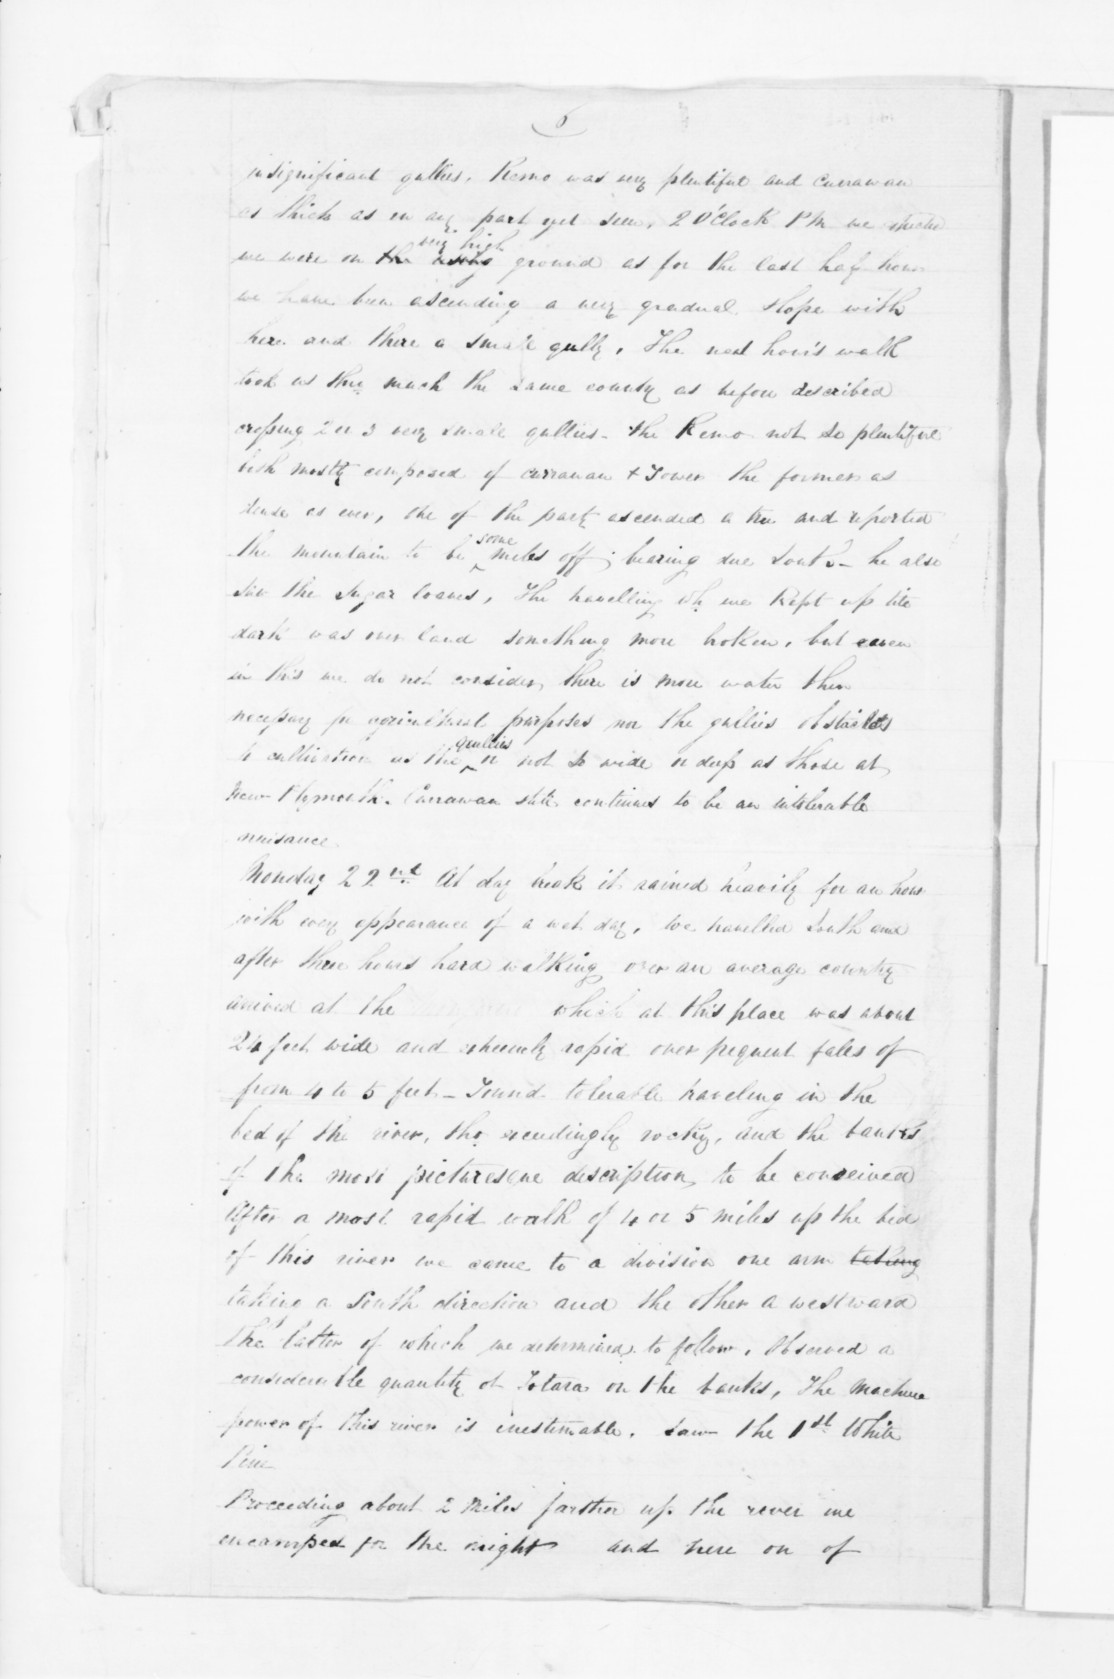 6
insignificant gullies. Remo was very plentiful and Carrawan
as thick as in any part yet seen. 2 O'Clock PM we
we were on the very high ground as for the last half hour
we have been ascending a very gradual slope with
here and there a small gully. The next hour's walk
took us thro much the same country as before described
crossing 2 or 3 very small gullies - the Remo not so plentiful
bush mostly composed of carrawan + Tower the former as
dense as ever, one of the party ascended a tree and reported
the mountain to be some miles off; bearing due South - he also
saw the Sugar loaves. The travelling wh we kept up till
dark was over land something more broken, but even
in this we do not consider, there is more water then
necessary for agricultural purposes nor the gullies obstacles
to cultivation as the gullies not so wide or deep as those at
New Plymouth. Carrawan still continues to be an intolerable
nuisance.
Monday 22nd At day break it rained heavily for an hour
with every appearance of a wet day. We travelled South and
after three hours hard walking over an average country
arrived at the which at this place was about
24 feet wide and extremely rapid over frequent falls of
from 4 to 5 feet - Found tolerable traveling in the
bed of the river, tho exceedingly rocky, and the banks
of the most picturesque description to be conceived
After a most rapid walk of 4 or 5 miles up the bed
of this river we came to a division one arm taking
taking a South direction and the other a westward
the latter of which we determined to follow. Observed a
considerable quantity of Totara on the banks. The machine
power of this river is inestimable. Saw the 1st White
Pine
Proceeding about 2 miles farther up the river we
encamped for the night and here on of